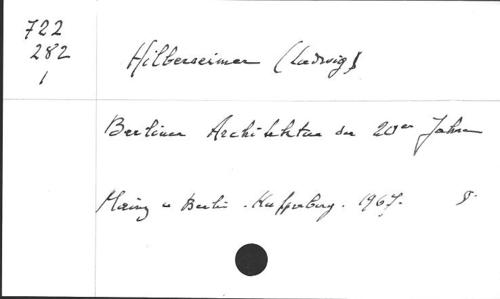 722
282
1
Hilberseimer (Ludwig)
Berliner Architektur der 20er Jahre
Mainz u Berlin. Kupferberg. 1967. 8°